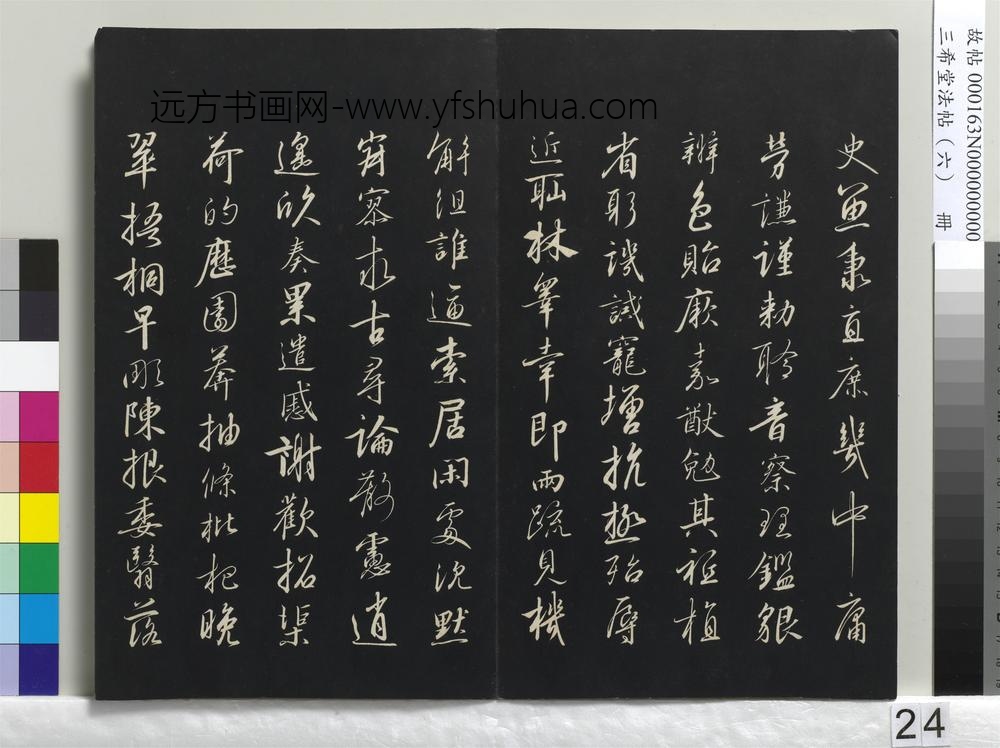 史魚秉直庶幾中庸
勞謙謹勅聆音察理鑑貌
辯色貽厥嘉猷勉其祗植
省躬譏誡寵增抗極殆辱
近恥林皋幸即兩疏見機
解組誰逼索居閑處沈默
寂寥求古尋論散慮逍
遙欣奏累遣慼謝歡招渠
荷的歷園莽抽條枇杷晚
翠梧桐早彫陳根委翳落
远方书画网-www.yfshuhua.com
故帖 000163N000000000
三希堂法帖（六） 册
24